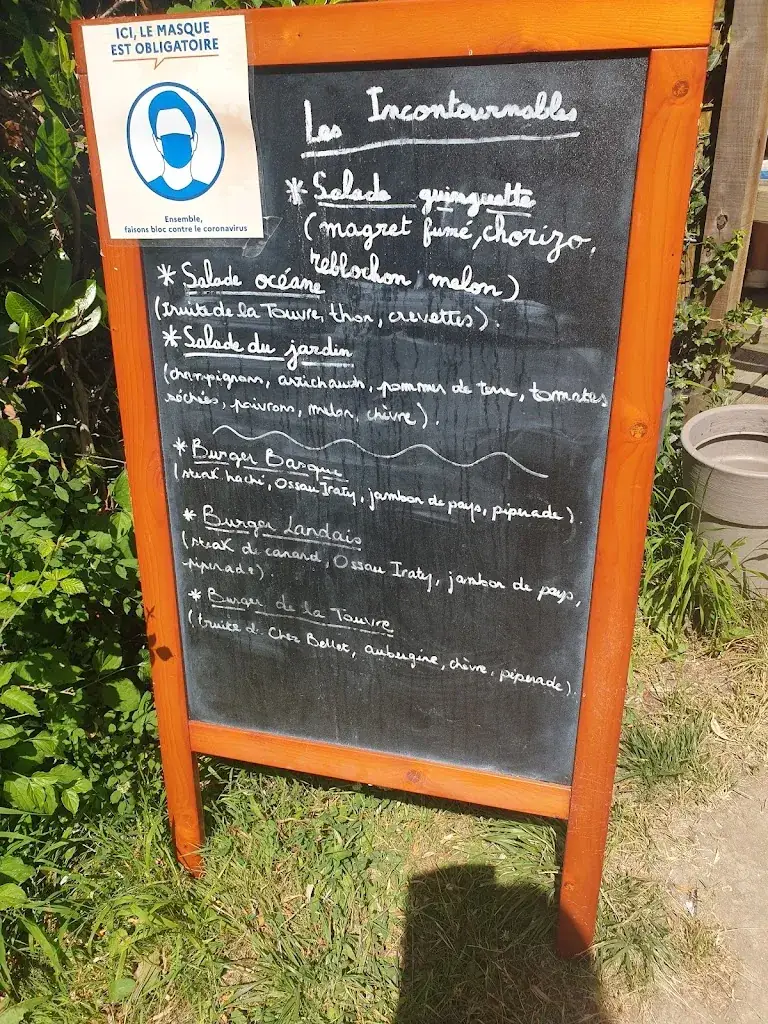 ICI, LE MASQUE
EST OBLIGATOIRE
Ensemble,
faisons bloc contre le coronavirus
Les Incontournables
* Salade guinguette
(magret fumé, chorizo,
reblochon, melon)
* Salade océane
(truite de la Touvre, thon, crevettes).
* Salade du jardin
(champignons, artichauts, pommes de terre, tomates
séchées, poivrons, melon, chèvre).
* Burger Basque
(steak haché, Ossau Iraty, jambon de pays, piperade).
* Burger Landais
(steak de canard, Ossau Iraty, jambon de pays,
piperade).
* Burger de la Touvre
(truite de Chez Bellet, aubergine, chèvre, piperade).